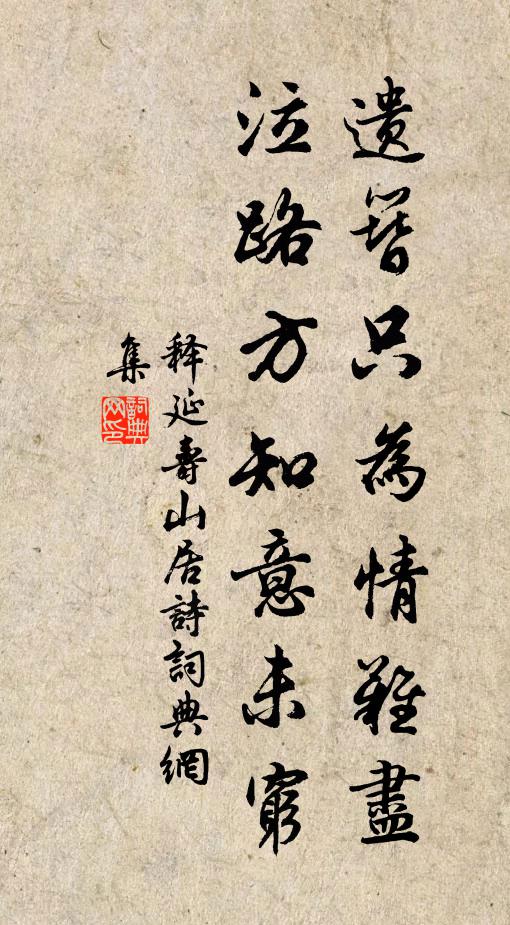 遺簪只為情難盡
泣路方知意未窮
释延壽山居詩詞典網
集
詞典網印